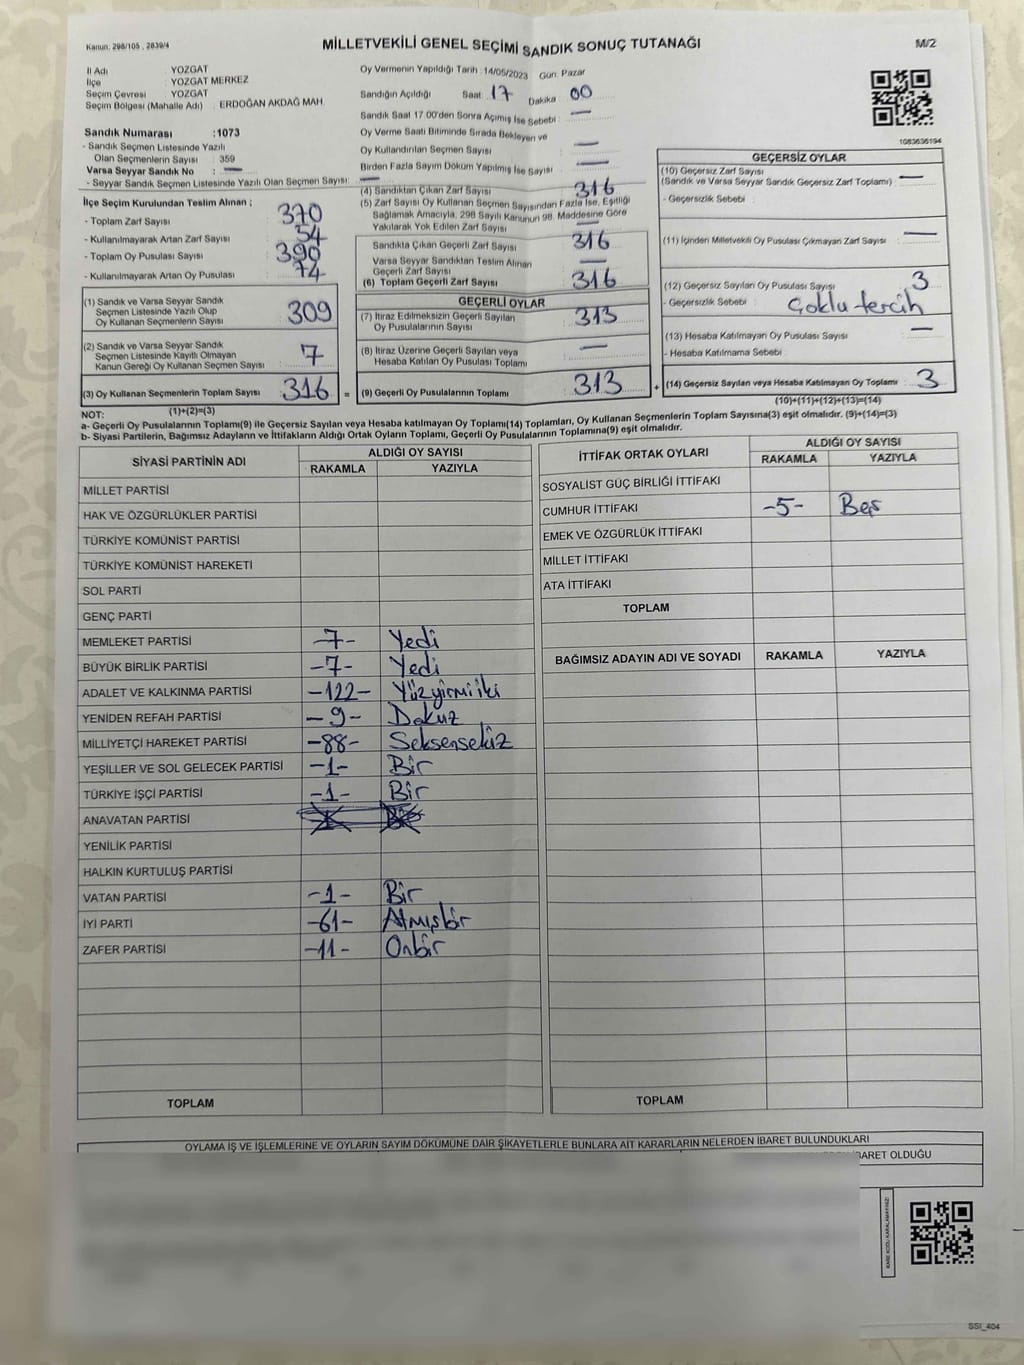 Kanun: 298/105 , 2839/4
MİLLETVEKİLİ GENEL SEÇİMİ SANDIK SONUÇ TUTANAĞI
M/2
İl Adı : YOZGAT
İlçe : YOZGAT MERKEZ
Seçim Çevresi : YOZGAT
Seçim Bölgesi (Mahalle Adı) : ERDOĞAN AKDAĞ MAH.
Sandık Numarası :1073
- Sandık Seçmen Listesinde Yazılı
Olan Seçmenlerin Sayısı : 359
Varsa Seyyar Sandık No : —
- Seyyar Sandık Seçmen Listesinde Yazılı Olan Seçmen Sayısı: —
İlçe Seçim Kurulundan Teslim Alınan ;
- Toplam Zarf Sayısı : 370
- Kullanılmayarak Artan Zarf Sayısı : 54
- Toplam Oy Pusulası Sayısı : 390
- Kullanılmayarak Artan Oy Pusulası : 74
(1) Sandık ve Varsa Seyyar Sandık
Seçmen Listesinde Yazılı Olup
Oy Kullanan Seçmenlerin Sayısı : 309
(2) Sandık ve Varsa Seyyar Sandık
Seçmen Listesinde Kayıtlı Olmayan
Kanun Gereği Oy Kullanan Seçmen Sayısı : 7
(3) Oy Kullanan Seçmenlerin Toplam Sayısı : 316 =
(1)+(2)=(3)
Oy Vermenin Yapıldığı Tarih :14/05/2023 Gün: Pazar
Sandığın Açıldığı Saat :17 Dakika 00
Sandık Saat 17.00'den Sonra Açılmış İse Sebebi : —
Oy Verme Saati Bitiminde Sırada Bekleyen ve
Oy Kullandırılan Seçmen Sayısı : —
Birden Fazla Sayım Döküm Yapılmış İse Sayısı : —
(4) Sandıktan Çıkan Zarf Sayısı : 316
(5) Zarf Sayısı Oy Kullanan Seçmen Sayısından Fazla İse, Eşitliği
Sağlamak Amacıyla, 298 Sayılı Kanunun 98. Maddesine Göre
Yakılarak Yok Edilen Zarf Sayısı : —
Sandıkta Çıkan Geçerli Zarf Sayısı : 316
Varsa Seyyar Sandıktan Teslim Alınan
Geçerli Zarf Sayısı : —
(6) Toplam Geçerli Zarf Sayısı : 316
GEÇERLİ OYLAR
(7) İtiraz Edilmeksizin Geçerli Sayılan
Oy Pusulalarının Sayısı : 313
(8) İtiraz Üzerine Geçerli Sayılan veya
Hesaba Katılan Oy Pusulası Toplamı : —
(9) Geçerli Oy Pusulalarının Toplamı : 313 +
1083636194
GEÇERSİZ OYLAR
(10) Geçersiz Zarf Sayısı : —
(Sandık ve Varsa Seyyar Sandık Geçersiz Zarf Toplamı)
- Geçersizlik Sebebi :
(11) İçinden Milletvekili Oy Pusulası Çıkmayan Zarf Sayısı : —
(12) Geçersiz Sayılan Oy Pusulası Sayısı : 3
- Geçersizlik Sebebi : Çoklu tercih
(13) Hesaba Katılmayan Oy Pusulası Sayısı : —
- Hesaba Katılmama Sebebi :
(14) Geçersiz Sayılan veya Hesaba Katılmayan Oy Toplamı : 3
(10)+(11)+(12)+(13)=(14)
NOT:
a- Geçerli Oy Pusulalarının Toplamı(9) ile Geçersiz Sayılan veya Hesaba katılmayan Oy Toplamı(14) Toplamları, Oy Kullanan Seçmenlerin Toplam Sayısına(3) eşit olmalıdır. (9)+(14)=(3)
b- Siyasi Partilerin, Bağımsız Adayların ve İttifakların Aldığı Ortak Oyların Toplamı, Geçerli Oy Pusulalarının Toplamına(9) eşit olmalıdır.
SİYASİ PARTİNİN ADI
ALDIĞI OY SAYISI
RAKAMLA YAZIYLA
MİLLET PARTİSİ
HAK VE ÖZGÜRLÜKLER PARTİSİ
TÜRKİYE KOMÜNİST PARTİSİ
TÜRKİYE KOMÜNİST HAREKETİ
SOL PARTİ
GENÇ PARTİ
MEMLEKET PARTİSİ -7- Yedi
BÜYÜK BİRLİK PARTİSİ -7- Yedi
ADALET VE KALKINMA PARTİSİ -122- Yüzyirmiiki
YENİDEN REFAH PARTİSİ -9- Dokuz
MİLLİYETÇİ HAREKET PARTİSİ -88- Seksensekiz
YEŞİLLER VE SOL GELECEK PARTİSİ -1- Bir
TÜRKİYE İŞÇİ PARTİSİ -1- Bir
ANAVATAN PARTİSİ
YENİLİK PARTİSİ
HALKIN KURTULUŞ PARTİSİ
VATAN PARTİSİ -1- Bir
İYİ PARTİ -61- Atmışbir
ZAFER PARTİSİ -11- Onbir
TOPLAM
İTTİFAK ORTAK OYLARI
ALDIĞI OY SAYISI
RAKAMLA YAZIYLA
SOSYALİST GÜÇ BİRLİĞİ İTTİFAKI
CUMHUR İTTİFAKI -5- Beş
EMEK VE ÖZGÜRLÜK İTTİFAKI
MİLLET İTTİFAKI
ATA İTTİFAKI
TOPLAM
BAĞIMSIZ ADAYIN ADI VE SOYADI RAKAMLA YAZIYLA
TOPLAM
OYLAMA İŞ VE İŞLEMLERİNE VE OYLARIN SAYIM DÖKÜMÜNE DAİR ŞİKAYETLERLE BUNLARA AİT KARARLARIN NELERDEN İBARET BULUNDUKLARI
İBARET OLDUĞU
KARE KODU KARALAMAYINIZ!
SSI_404